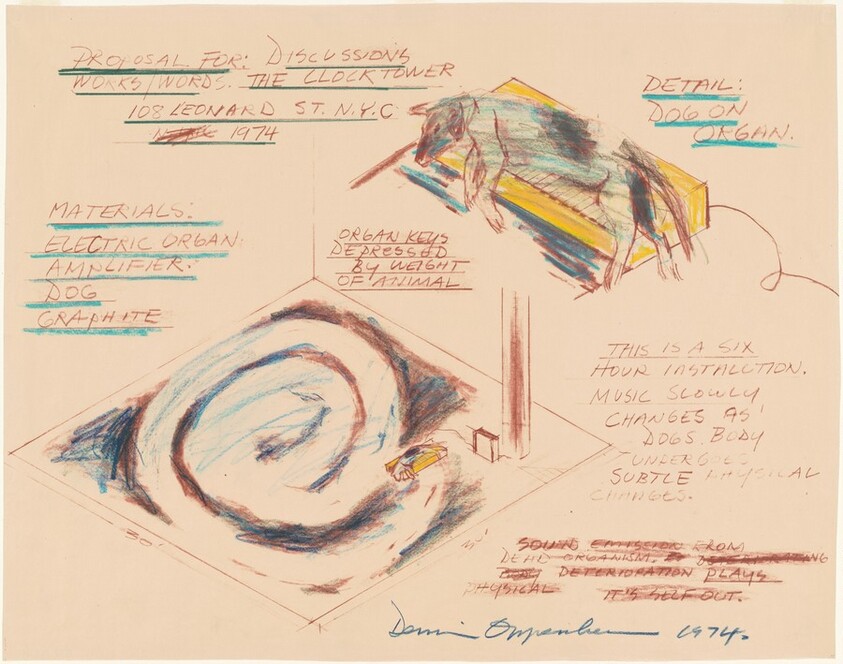 PROPOSAL FOR: DISCUSSIONS
WORKS/WORDS. THE CLOCKTOWER
108 LEONARD ST. N.Y.C
1974
DETAIL:
DOG ON
ORGAN.
MATERIALS:
ELECTRIC ORGAN
AMPLIFIER.
DOG
GRAPHITE
ORGAN KEYS
DEPRESSED
BY WEIGHT
OF ANIMAL
THIS IS A SIX
HOUR INSTALLTION.
MUSIC SLOWLY
CHANGES AS
DOGS. BODY
UNDERGOES
SUBTLE PHYSICAL
CHANGES.
30'
SOUND EMISSION FROM
DEAD ORGANISM.
DETERIORATION PLAYS
PHYSICAL IT'S SELF OUT.
Dennis Oppenheim 1974.